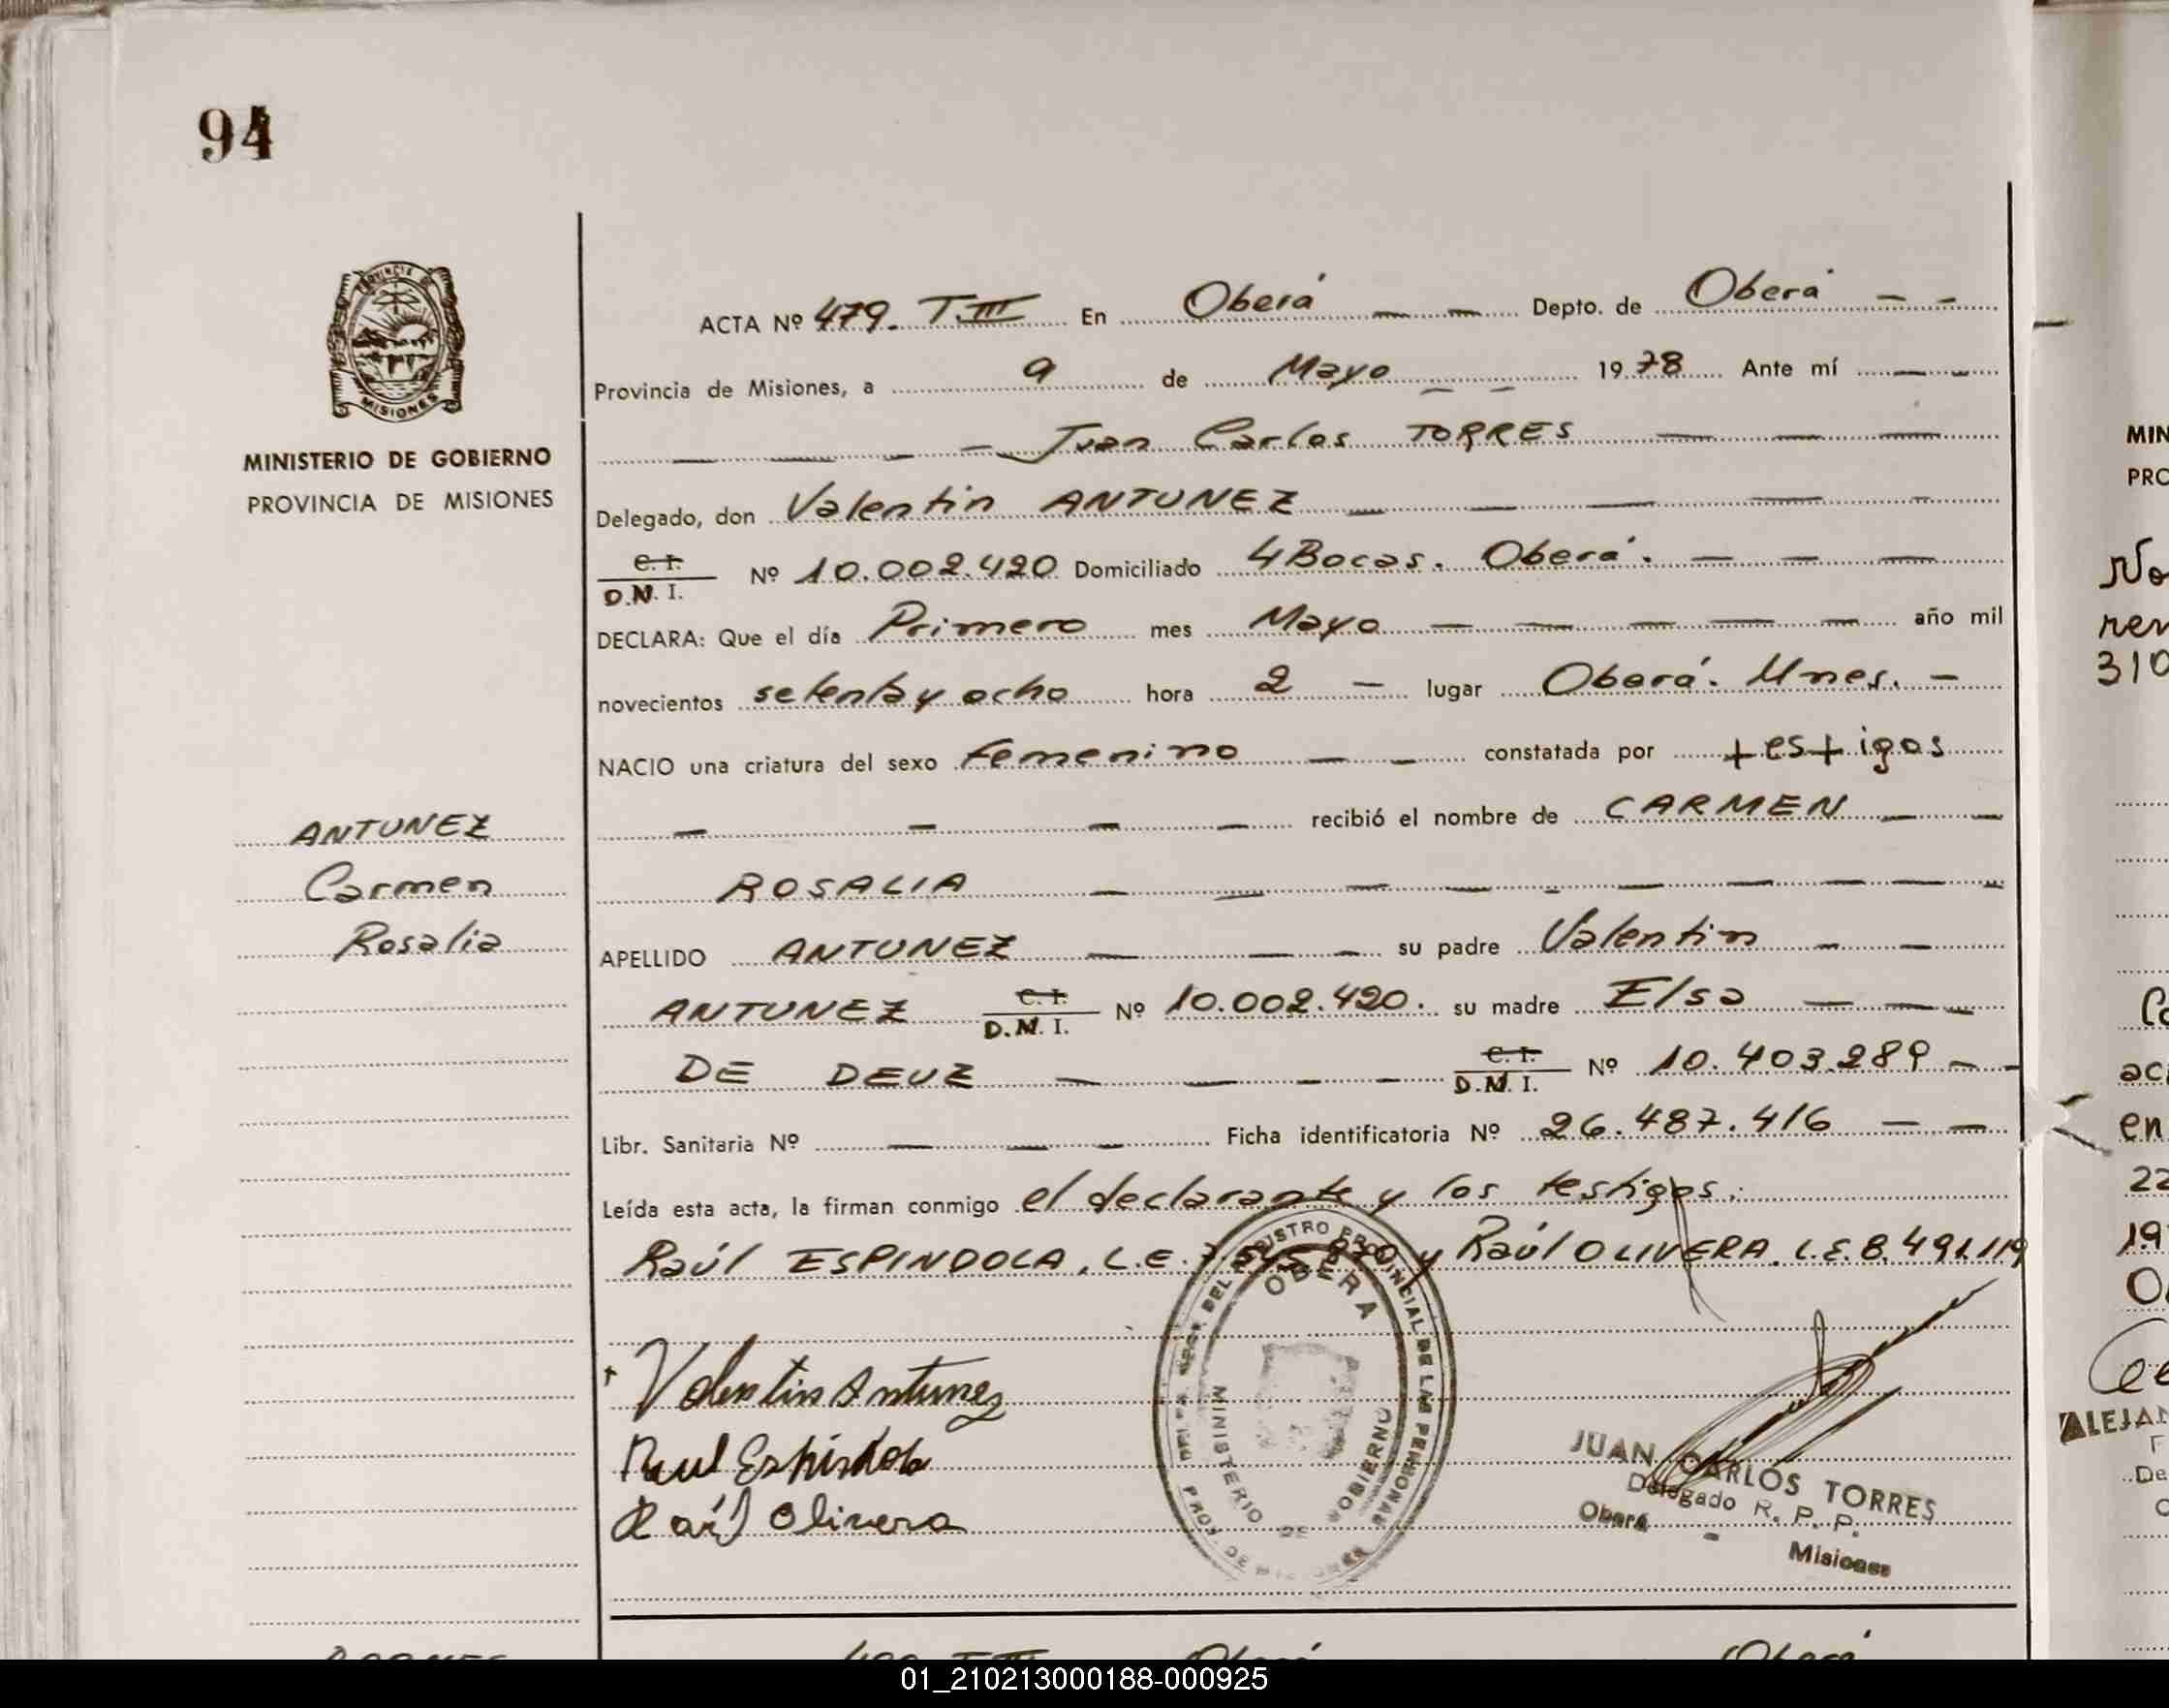 94
PROVINCIA DE
MISIONES
MINISTERIO DE GOBIERNO
PROVINCIA DE MISIONES
ANTUNEZ
Carmen
Rosalia
ACTA Nº 479. T.III En Oberá — — Depto. de Oberá — —
Provincia de Misiones, a 9 de Mayo — — 1978 Ante mí — —
— — — — Juan Carlos TORRES — — —
Delegado, don Valentin ANTUNEZ — — — — —
C. I. / D.N.I. Nº 10.002.420 Domiciliado 4 Bocas. Oberá. — — —
DECLARA: Que el día Primero mes Mayo — — — — — año mil
novecientos setenta y ocho hora 2 — lugar Oberá. Mnes. —
NACIO una criatura del sexo Femenino — — constatada por testigos
— — — — recibió el nombre de CARMEN — —
ROSALIA — — — — — — — — —
APELLIDO ANTUNEZ — — — su padre Valentin — —
ANTUNEZ C. I. / D.N.I. Nº 10.002.420. su madre Elsa — — —
DE DEUZ — — — — C. I. / D.N.I. Nº 10.403.289 — —
Libr. Sanitaria Nº — — — Ficha identificatoria Nº 26.487.416 — —
Leída esta acta, la firman conmigo el declarante y los testigos:
Raúl ESPINDOLA, L.E. y Raúl OLIVERA. L.E. 8.491.119
Valentin Antunez
Raul Espindola
Raúl Olivera
OBERA
MINISTERIO DE GOBIERNO
JUAN CARLOS TORRES
Delegado R. P. P.
Oberá - Misiones
MIN
PRO
No
ren
310
en
22
19
ALEJAN
De
01_210213000188-000925